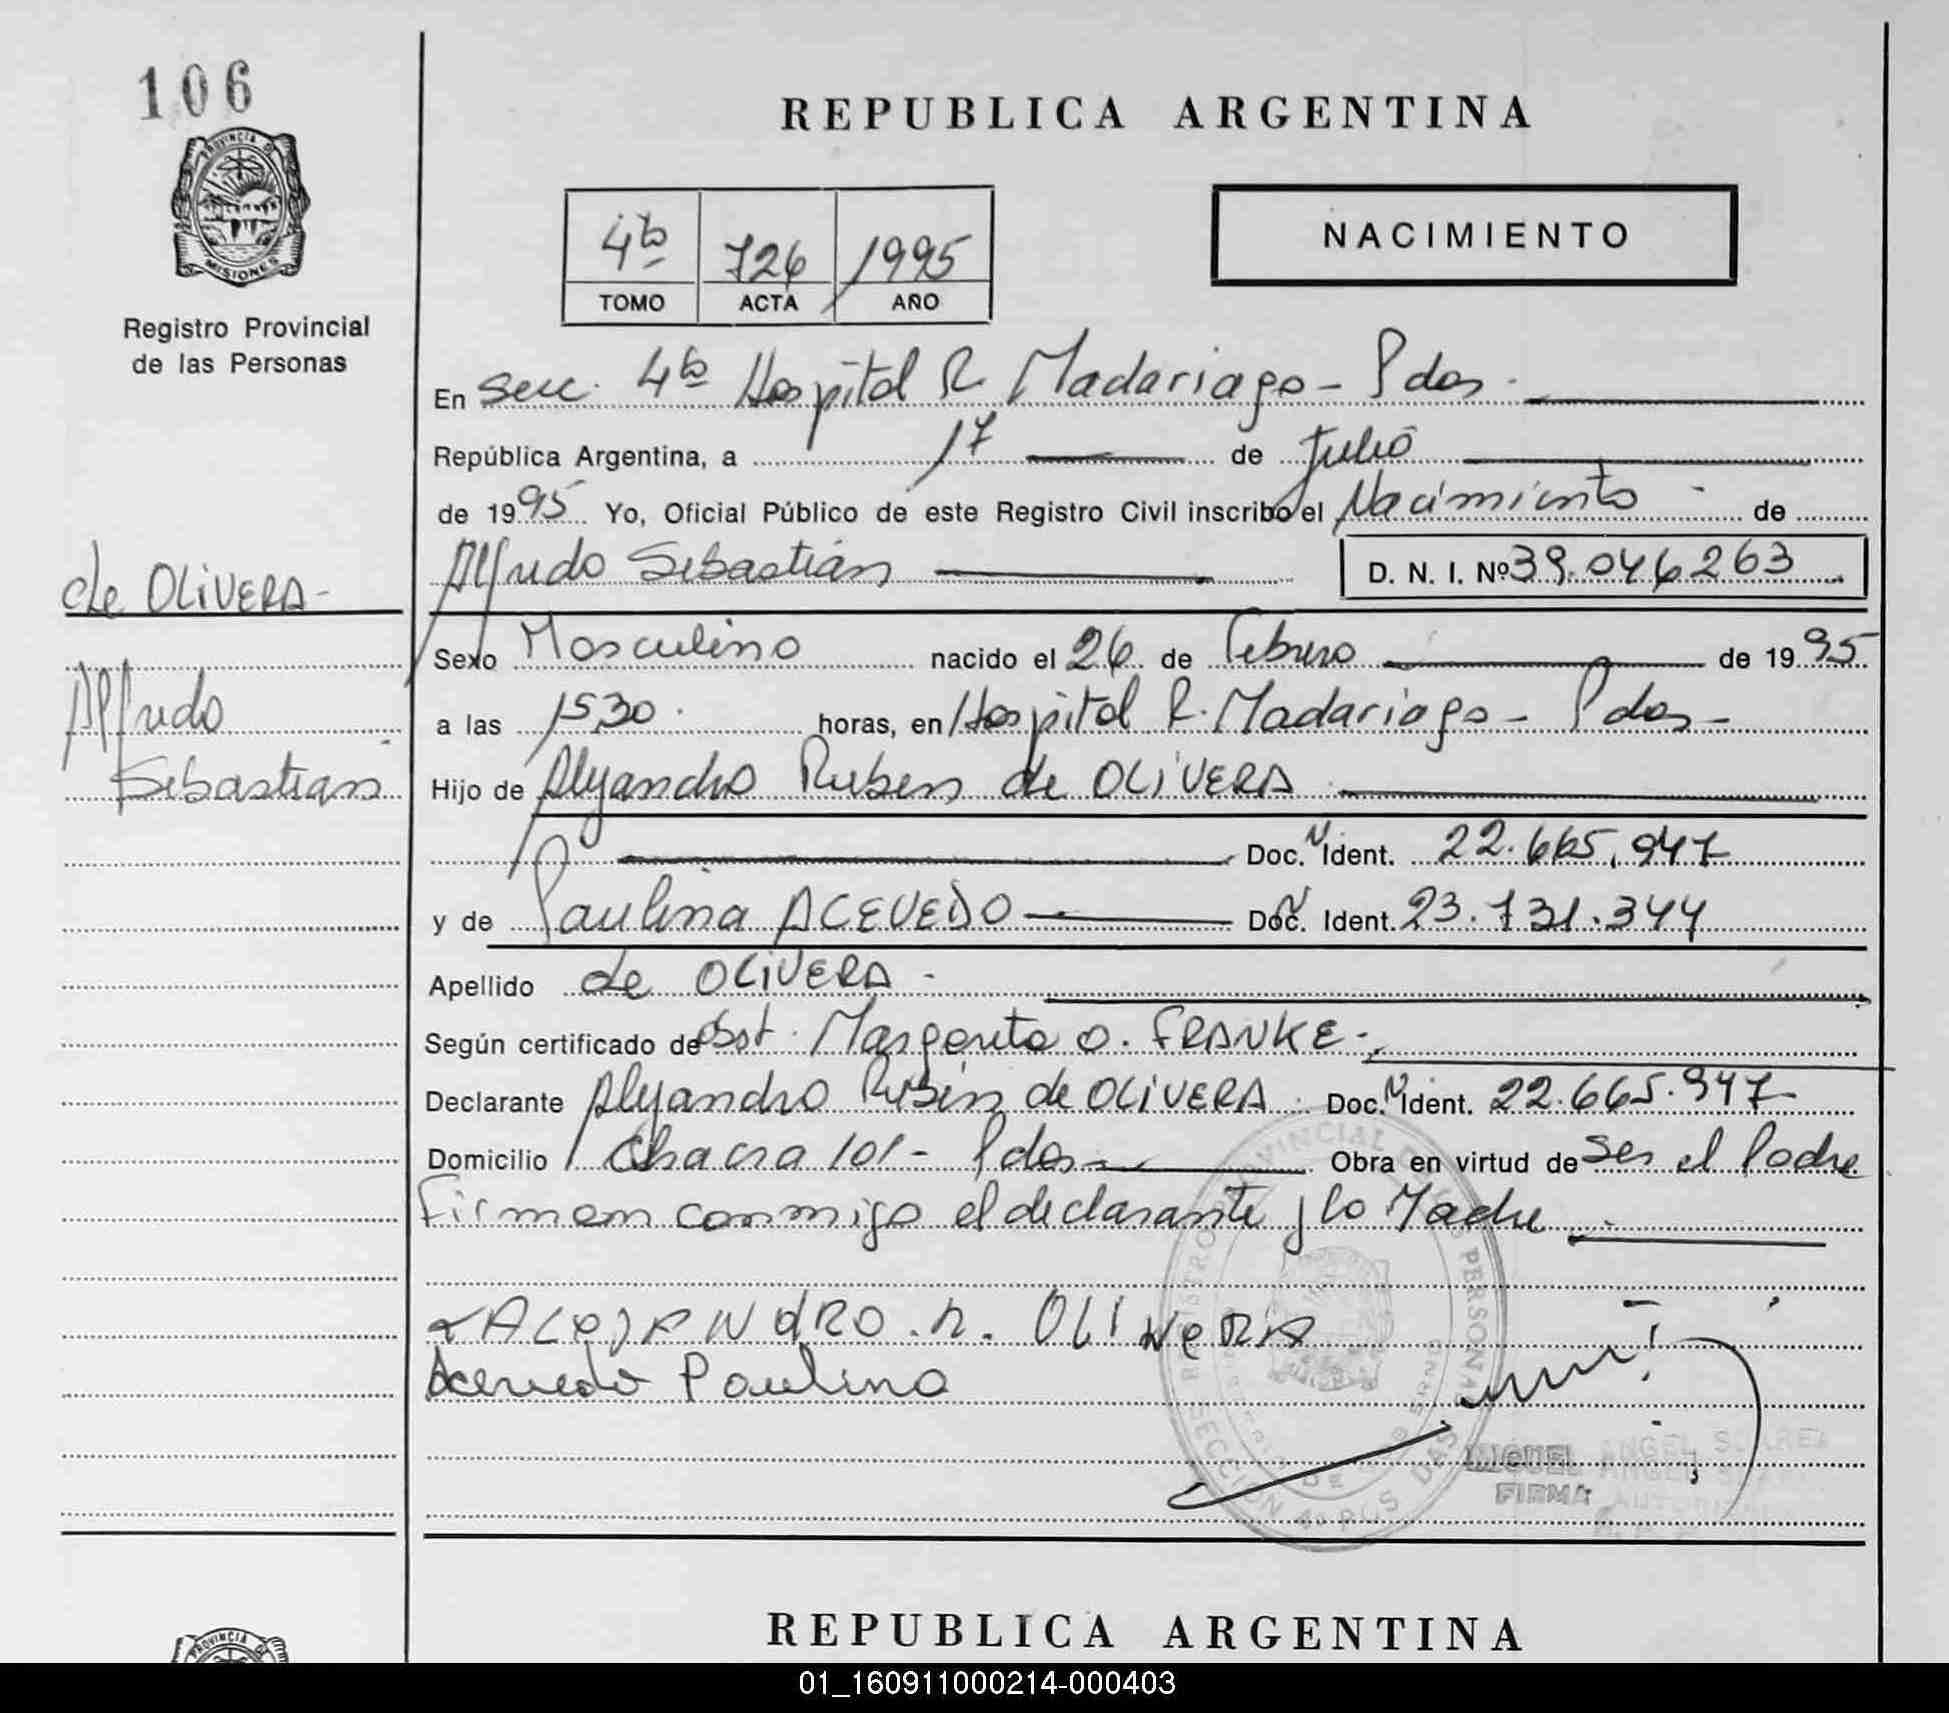 106
PROVINCIA DE
MISIONES
Registro Provincial
de las Personas
REPUBLICA ARGENTINA
4to 726 1995
TOMO ACTA AÑO
NACIMIENTO
En Secc. 4ta Hospital R. Madariaga - Pdas.
República Argentina, a 17 de Julio
de 1995 Yo, Oficial Público de este Registro Civil inscribo el Nacimiento de
Alfredo Sebastián D. N. I. Nº 39.046263
de OLIVERA -
Alfredo
Sebastián
Sexo Masculino nacido el 26 de Febrero de 1995
a las 1530. horas, en Hospital R. Madariaga - Pdas -
Hijo de Alejandro Ruben de OLIVERA
Doc. N Ident. 22.665.947
y de Paulina ACEVEDO Doc. N Ident. 23.731.344
Apellido de OLIVERA -
Según certificado de Obst. Margarita O. FRANKE -
Declarante Alejandro Rubén de OLIVERA Doc. N Ident. 22.665.947-
Domicilio Chacra 101 - Pdas - Obra en virtud de Ser el Padre
Firman conmigo el declarante y la Madre
ALEJANDRO . R. OLIVERA
Acevedo Paulina
REGISTRO PROVINCIAL DE LAS PERSONAS
SECCION 4º POSADAS
MIGUEL ANGEL SUAREZ
FIRMA AUTORIZADA
REPUBLICA ARGENTINA
PROVINCIA DE
01_160911000214-000403